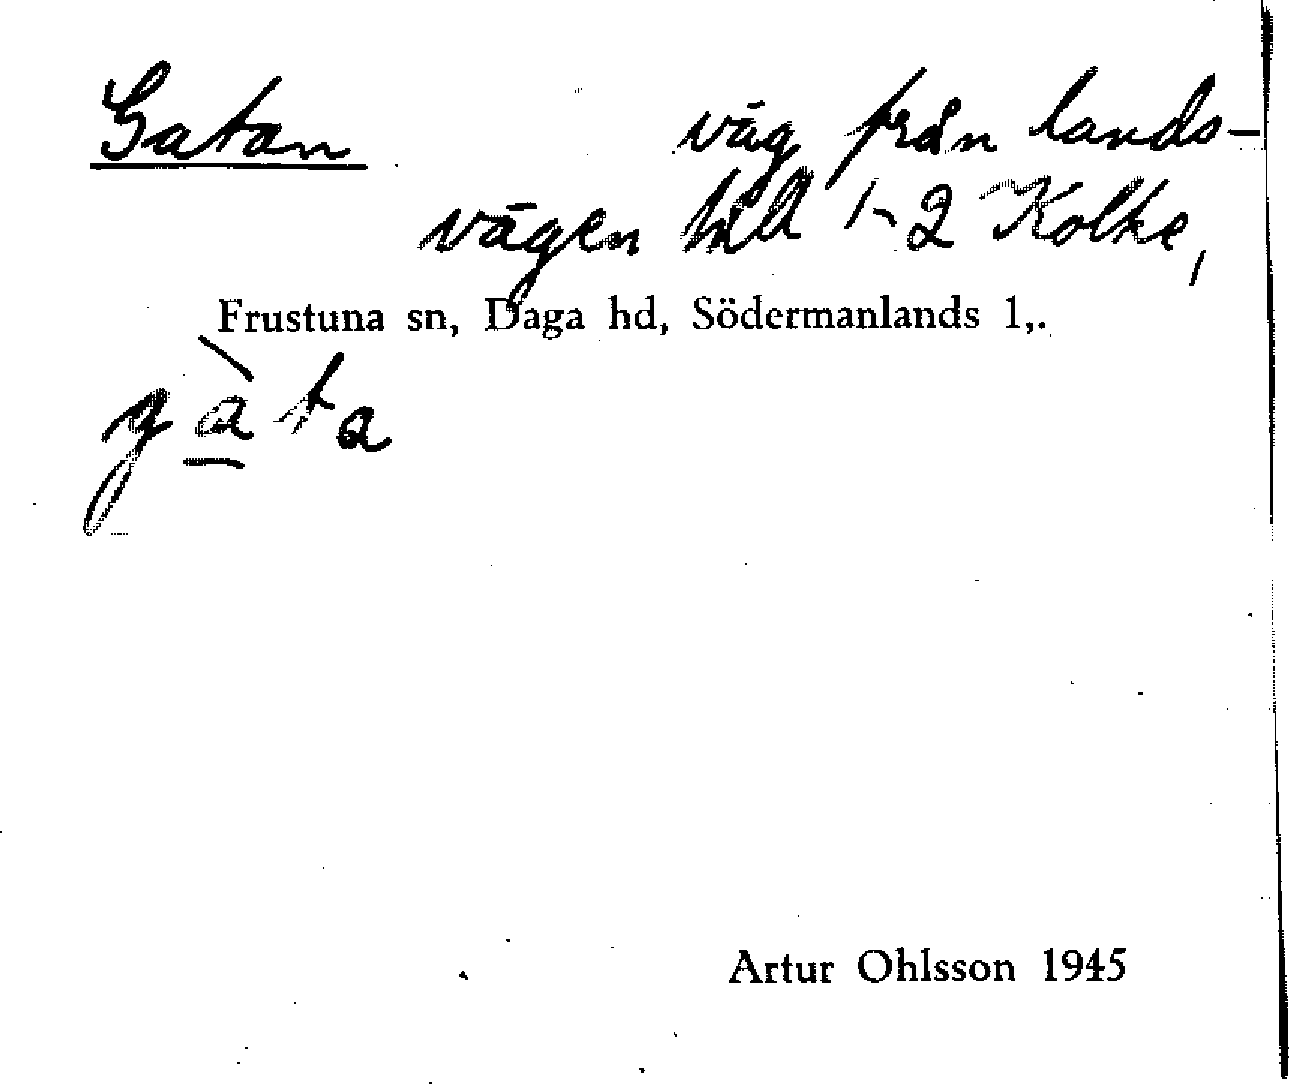 Gatan väg från lands-
vägen till 1-2 Kolke,
Frustuna sn, Daga hd, Södermanlands l,.
gàta
Artur Ohlsson 1945